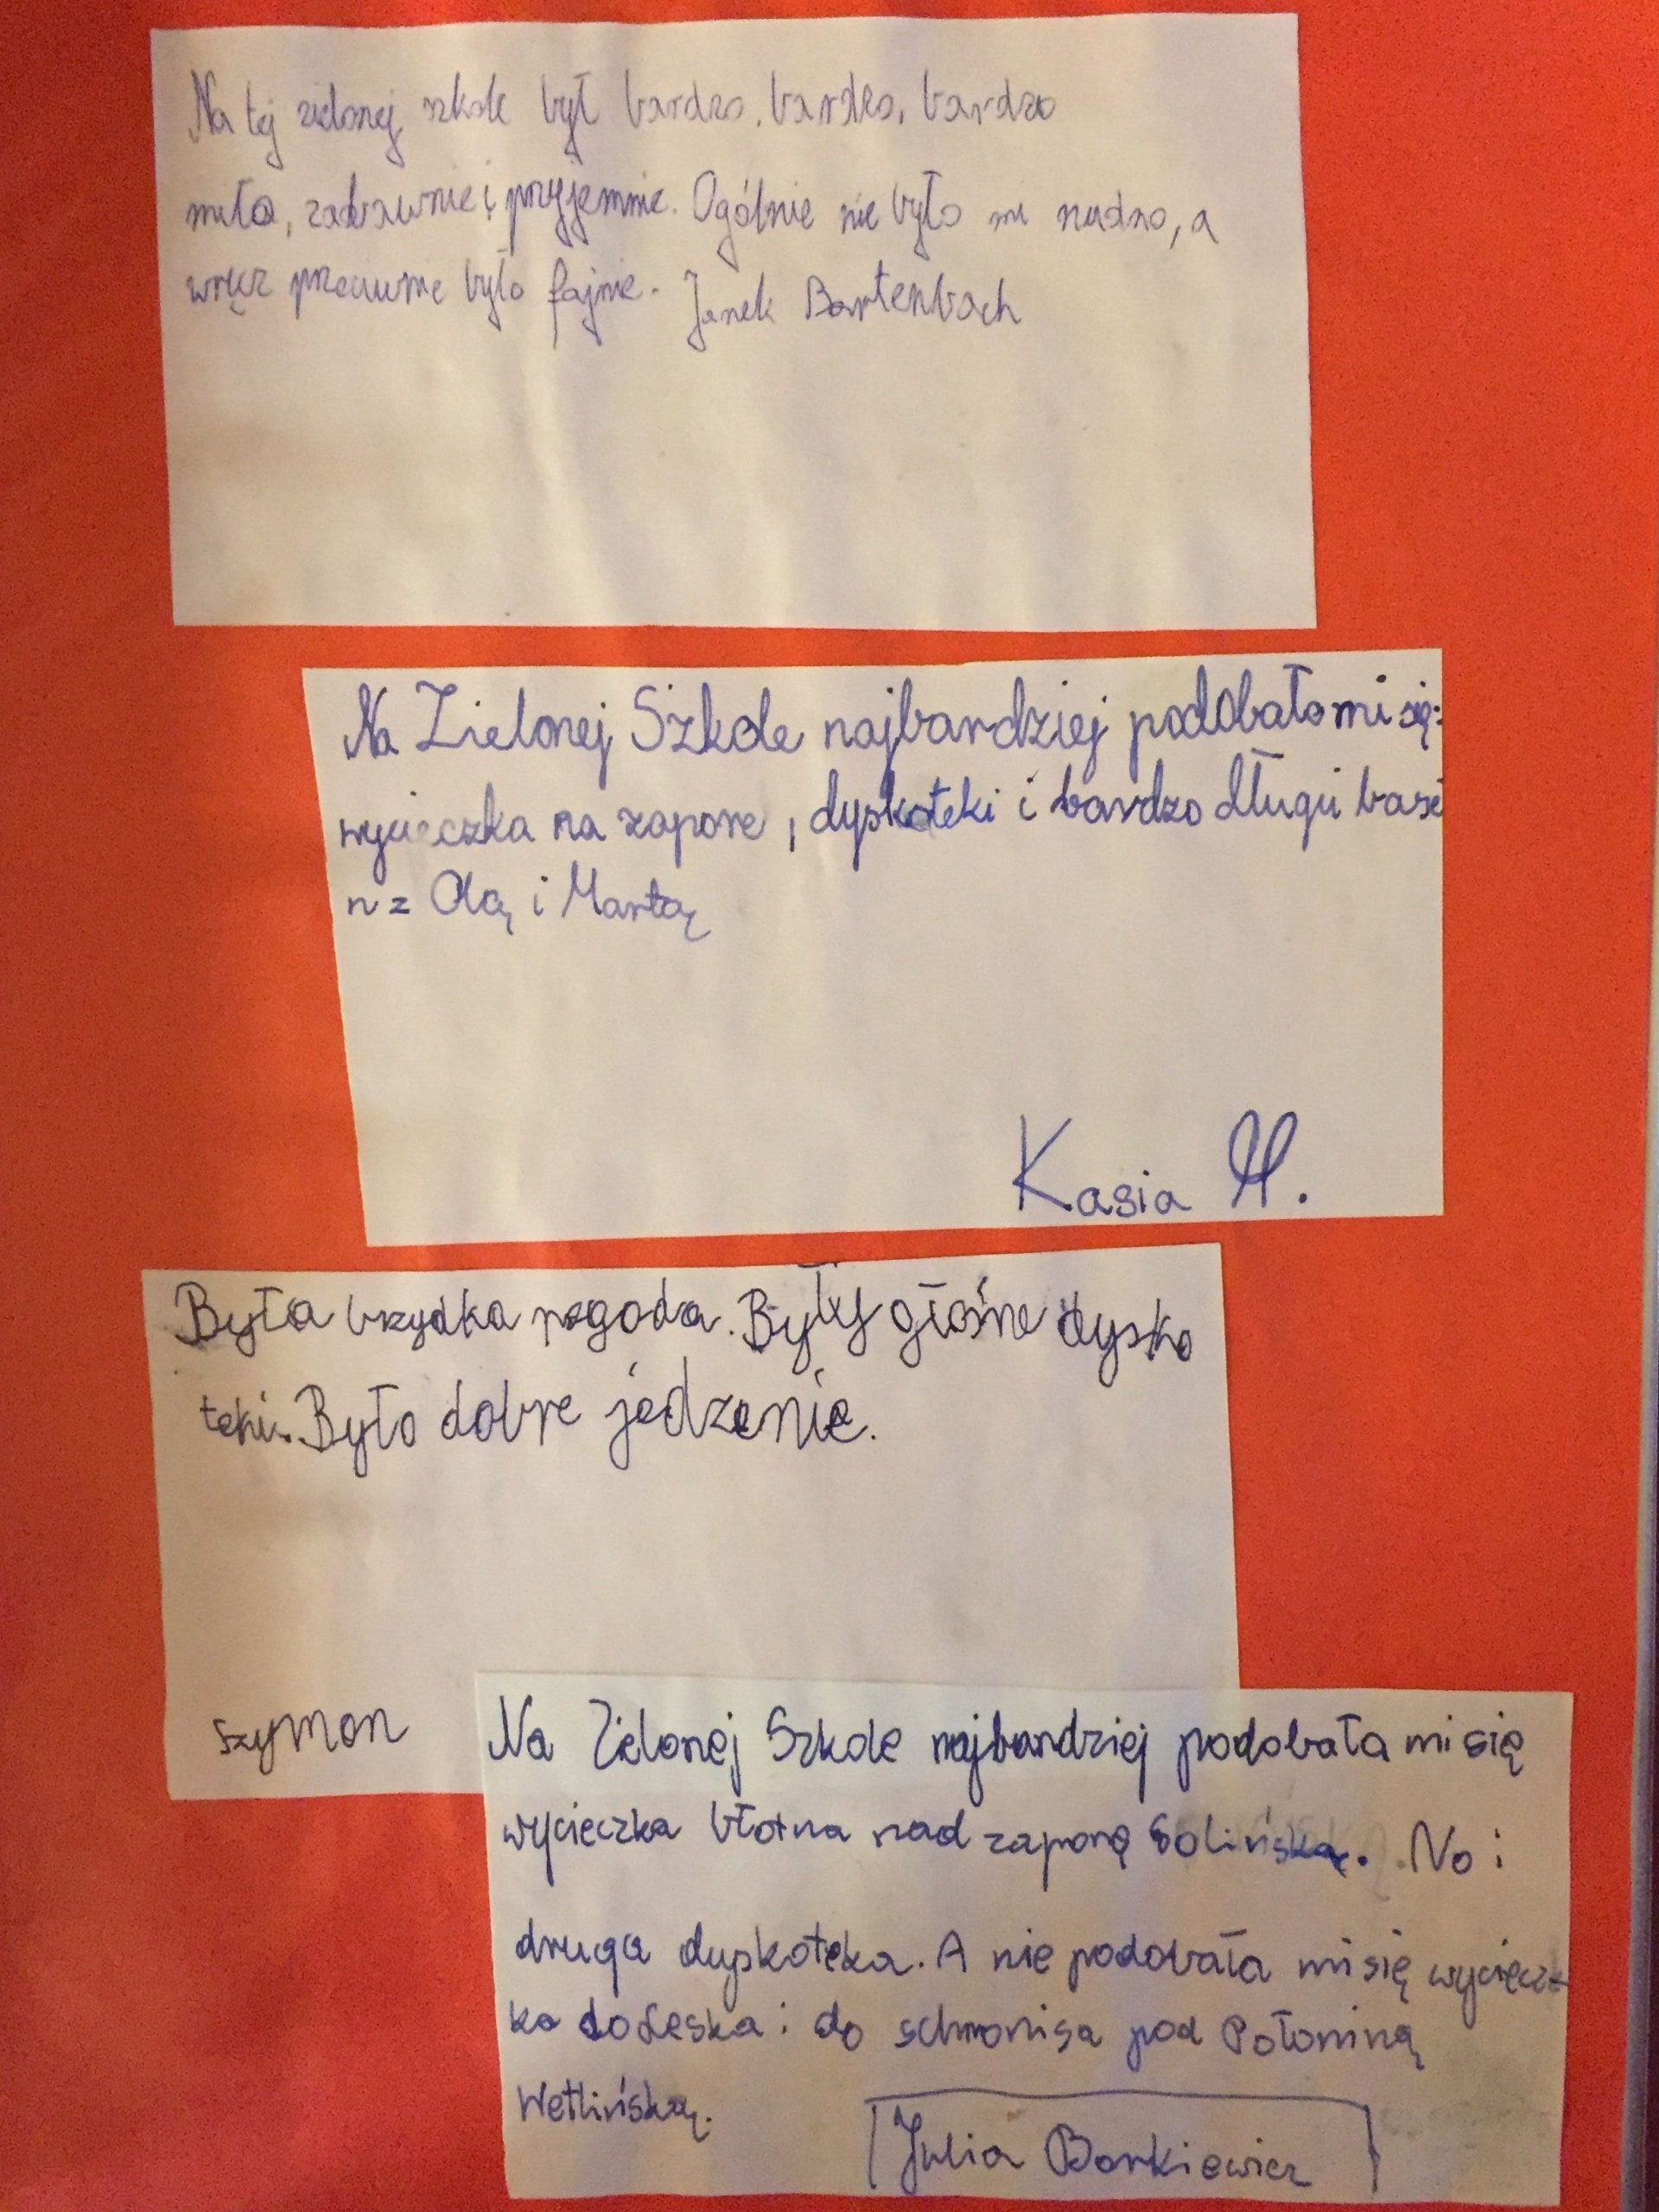 Na tej zielonej szkole był bardzo, bardzo, bardzo
miło, zabawnie i przyjemnie. Ogólnie nie było mi nudno, a
wręcz przeciwnie było fajnie. Janek Bartenbach
Na Zielonej Szkole najbardziej podobało mi się:
wycieczka na zapore, dyskoteki i bardzo długi base
n z Olą i Martą
Kasia H.
Była brzydka pogoda. Były głośne dysko
teki. Było dobre jedzenie.
Szymon
Na Zielonej Szkole najbardziej podobała mi się
wycieczka błotna nad zaporę Solińską. No i
druga dyskoteka. A nie podobała mi się wyciecz-
ka do Leska i do schronisa pod Połoniną
Wetlińską.
Julia Borkiewicz